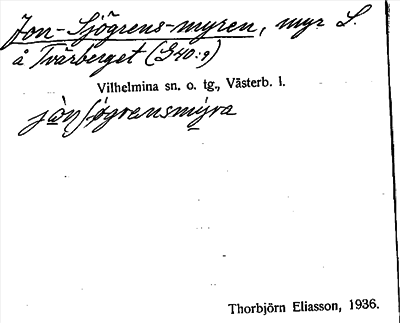 Jon-Sjögrens-myren, myr S.
å Tvärberget (G40:9)
Vilhelmina sn. o. tg., Västerb. l.
jòn ʃøgrensmýra
Thorbjörn Eliasson, 1936.